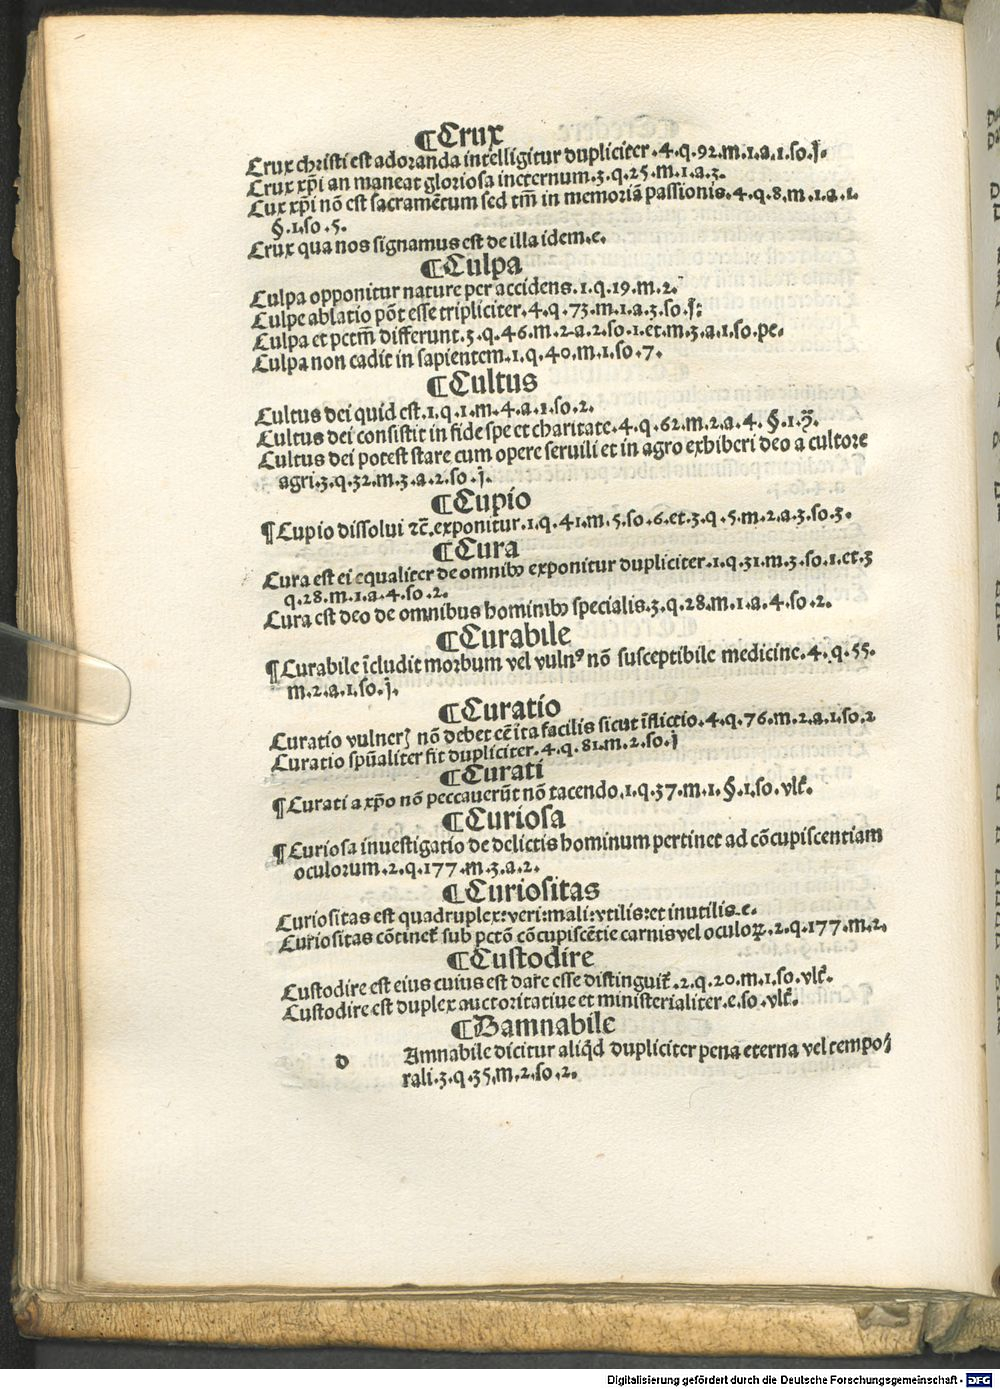 ¶Crux
Crux christi est adoranda intelligitur dupliciter.4.q.92.m.1.a.1.so.j.
Crux xp̄i an maneat gloriosa ineternum.3.q.25.m.1.a.3.
Cux xp̄i nō est sacramētum sed tm̄ in memoriā passionis.4.q.8.m.1.a.1.
§.1.so.5.
Crux qua nos signamus est de illa idem.e.
¶Culpa
Culpa opponitur nature per accidens.1.q.19.m.2.
Culpe ablatio pōt esse tripliciter.4.q.73.m.1.a.3.so.j:
Culpa et pctm̄ differunt.3.q.46.m.2.a.2.so.1.et.m.3.a.1.so.pe.
Culpa non cadit in sapientem.1.q.40.m.1.so.7.
¶Cultus
Cultus dei quid est.1.q.1.m.4.a.1.so.2.
Cultus dei consistit in fide spe et charitate.4.q.62.m.2.a.4.§.1.
Cultus dei potest stare cum opere seruili et in agro exhiberi deo a cultore
agri.3.q.32.m.3.a.2.so.j.
¶Cupio
¶Cupio dissolui ⁊c̄.exponitur.1.q.41.m.5.so.6.et.3.q.5.m.2.a.3.so.3.
¶Cura
Cura est ei equaliter de omnibꝫ exponitur dupliciter.1.q.31.m.3.so.1.et.3
q.28.m.1.a.4.so.2.
Cura est deo de omnibus hominibꝫ specialis.3.q.28.m.1.a.4.so.2.
¶Curabile
¶Curabile īcludit morbum vel vulnꝰ nō susceptibile medicine.4.q.55.
m.2.a.1.so.j.
¶Curatio
Curatio vulneꝝ nō debet eē ita facilis sicut īflictio.4.q.76.m.2.a.1.so.2
Curatio spūaliter fit dupliciter.4.q.81.m.2.so.j
¶Curati
¶Curati a xp̄o nō peccauerūt nō tacendo.1.q.37.m.1.§.1.so.vlt̄.
¶Curiosa
¶Curiosa inuestigatio de delictis hominum pertinet ad cōcupiscentiam
oculorum.2.q.177.m.3.a.2.
¶Curiositas
Curiositas est quadruplex:veri:mali:vtilis:et inutilis.e.
Curiositas cōtinet̄ sub pctō cōcupiscētie carnis vel oculoꝝ.2.q.177.m.2.
¶Custodire
Custodire est eius cuius est dare esse distinguit̄.2.q.20.m.1.so.vlt̄.
Custodire est duplex auctoritatiue et ministerialiter.e.so.vlt̄.
¶Damnabile
d Amnabile dicitur aliqd̄ dupliciter pena eterna vel tempo⸗
rali.3.q.35.m.2.so.2.
Digitalisierung gefördert durch die Deutsche Forschungsgemeinschaft - DFG